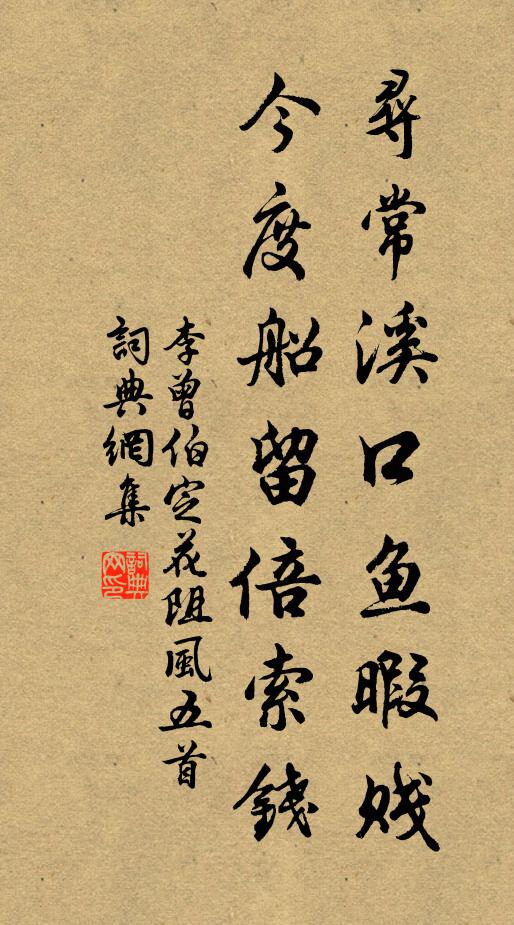 尋常溪口鱼暇賎
今度船留倍索錢
李曾伯定花阻風五首
詞典網集
詞典網印